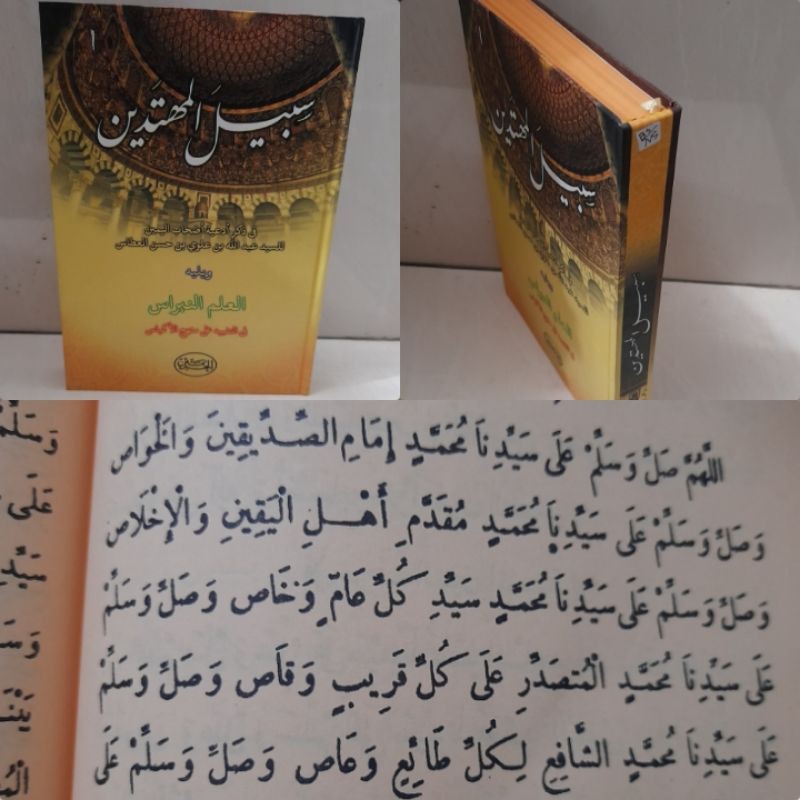 ١
سَبِيلَ المُهْتَدِين
في ذكر أدعية أصحاب اليمين
للسيد عبد الله بن علوي بن حسن العطاس
ويليه
العلم النبراس
في التنبيه على منهج الأكياس
١
سَبِيلَ المُهْتَدِين
سبيل المهتدين
اللَّهُمَّ صَلِّ وَسَلِّمْ عَلَى سَيِّدِنَا مُحَمَّدٍ إِمَامِ الصِّدِّيقِينَ وَالْخَوَاص
وَصَلِّ وَسَلِّمْ عَلَى سَيِّدِنَا مُحَمَّدٍ مُقَدَّمِ أَهْلِ الْيَقِينِ وَالْإِخْلَاص
وَصَلِّ وَسَلِّمْ عَلَى سَيِّدِنَا مُحَمَّدٍ سَيِّدِ كُلِّ عَامٍّ وَخَاص وَصَلِّ وَسَلِّمْ
عَلَى سَيِّدِنَا مُحَمَّدٍ الْمُتَصَدِّرِ عَلَى كُلِّ قَرِيبٍ وَقَاص وَصَلِّ وَسَلِّمْ
عَلَى سَيِّدِنَا مُحَمَّدٍ الشَّافِعِ لِكُلِّ طَائِعِ وَعَاص وَصَلِّ وَسَلِّمْ عَلَى